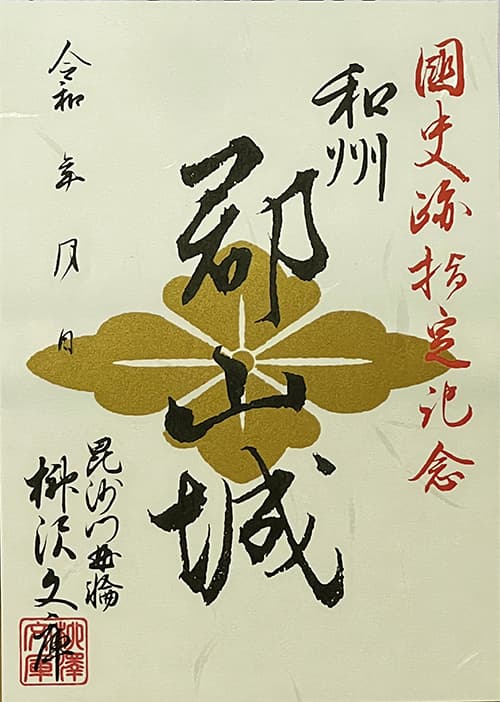 國史跡指定記念
和州
郡山城
令和 年 月 日
毘沙門曲輪
柳沢文庫
柳澤文庫